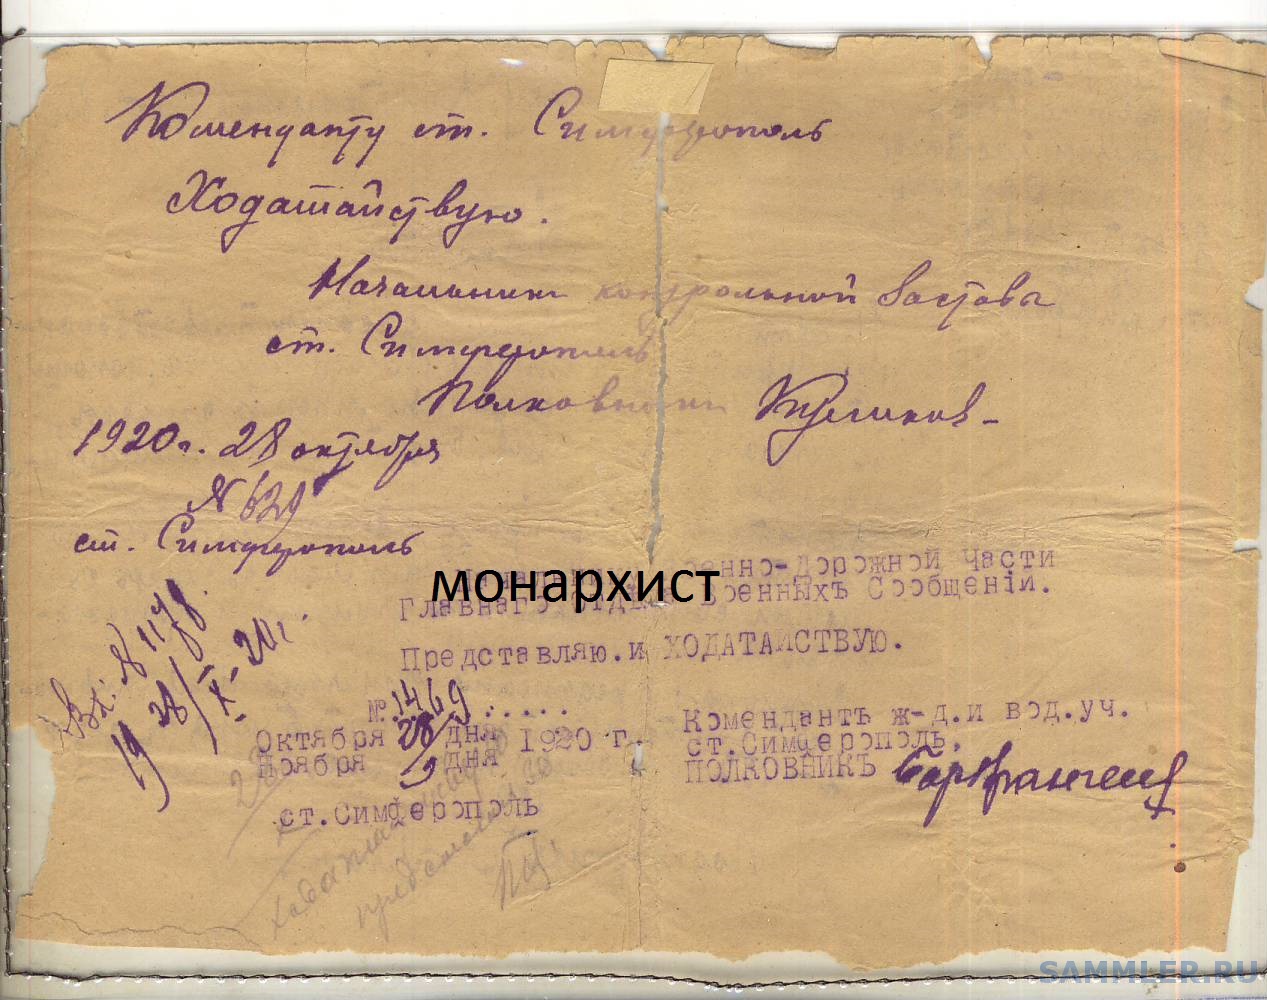 Коменданту ст. Симферополь
Ходатайствую.
Начальник контрольной заставы
ст. Симферополь
Полковник Куликов
1920 г. 28 октября
№ 629
ст. Симферополь
монархист
Военно-Дорожной Части
Главнаго Отдѣла Военныхъ Сообщеній.
Представляю.и ХОДАТАЙСТВУЮ.
№.1469.....
Октября 28 дня
Ноября 9 дня 1920 г.
ст.Симферополь
Комендантъ ж-д.и вод.уч.
ст.Симферополь,
ПОЛКОВНИКЪ
Вх. № 1178
19 28/X 20 г.
28
X
ходатайствую
SAMMLER.RU